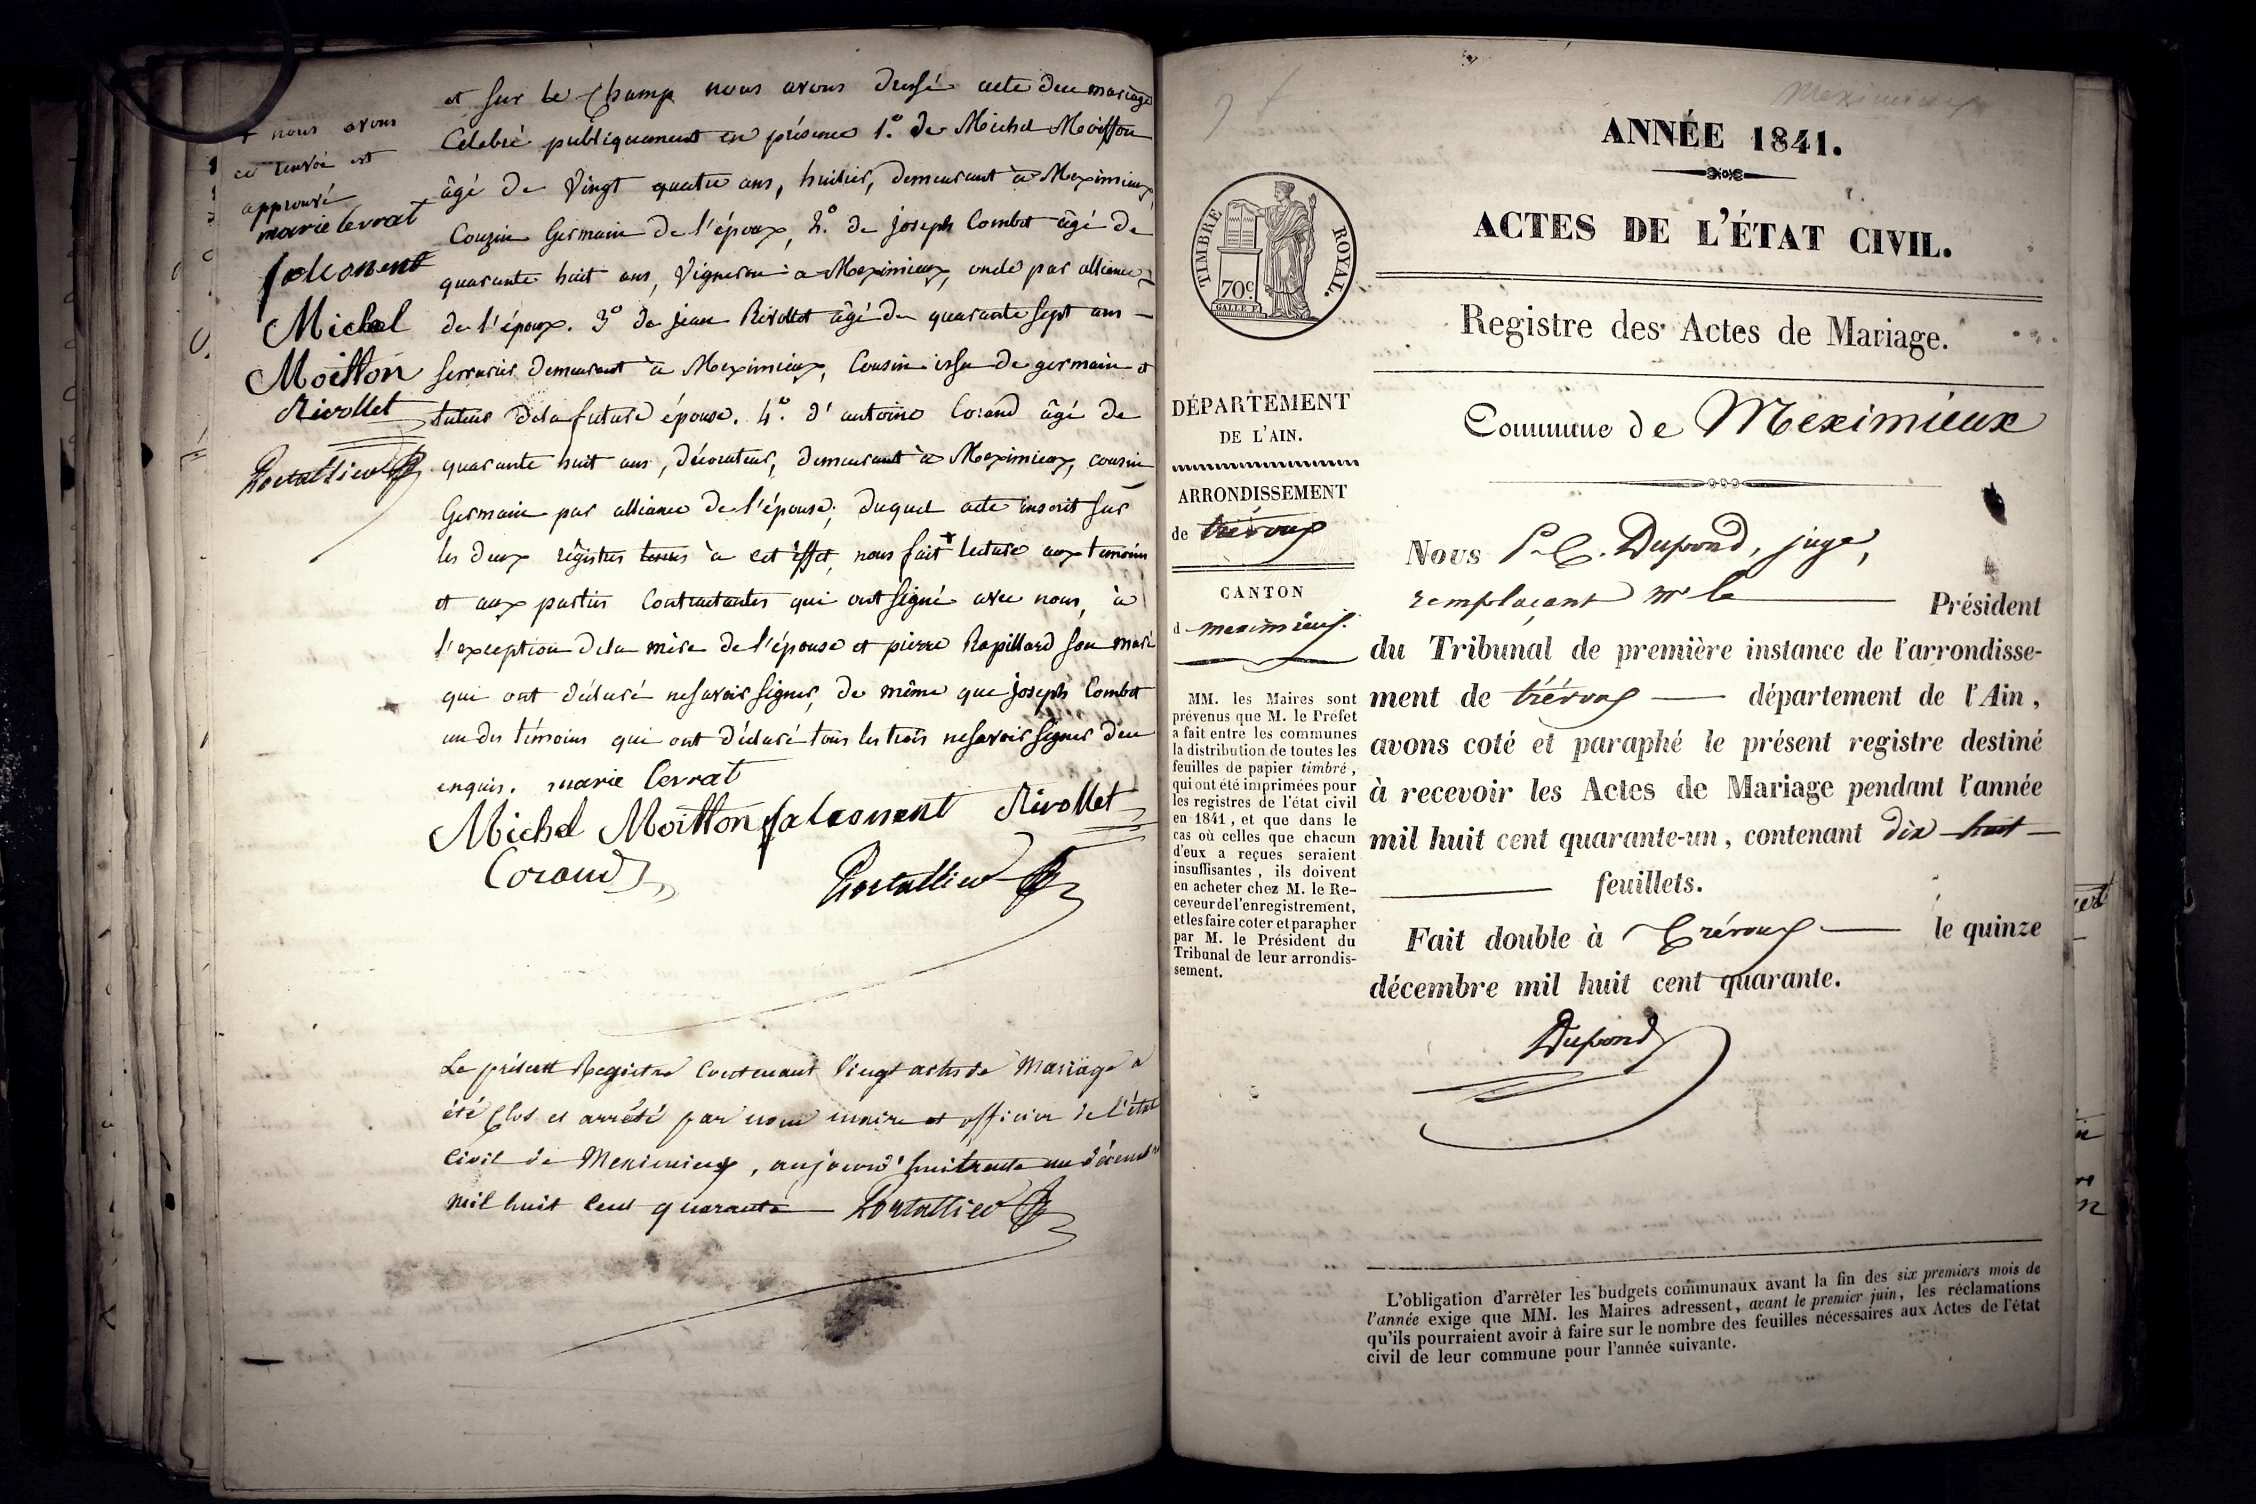 et sur le Champ nous avons dressé acte du mariage
Célebré publiquement en présence 1.º de Michel Moitton
âgé de Vingt quatre ans, huilier, demeurant à Meximieux,
Couzin Germain de l'époux, 2.º de joseph Combet âgé de
quarante huit ans, Vigneron à Meximieux, oncle par alliance
de l'époux. 3º de jean Rivollet âgé de quarante sept ans —
serrurier demeurant à Meximieux, Cousin issu de germain et
tuteur dela future épouse. 4.º d'antoine Corand âgé de
quarante huit ans, décorateur, demeurant à Meximieux, cousin
Germain par alliance de l'épouse; duquel acte inscrit sur
les deux régistres tenus à cet éffet, nous fait + lecture aux témoins
et aux parties Contractantes qui ont signé avec nous, à
l'exception dela mère de l'épouse et pierre Rapillard son mari
qui ont déclaré ne savoir signer, de même que joseph Combet
un des témoins qui ont déclaré tous les trois ne savoir signer de ce
enquis. marie Cevrat
Michel Moitton falconent Rivollet
Corand
Portallier
+ nous avons
ce renvoi est
approuvé
marie Cevrat
falconent
Michel
Moitton
Rivollet
Portallier
Le présent Registre Contenant Vingt actes de Mariage a
été Clos et arrêté par nous maire et officier de l'état
Civil de Meximieux, aujourd'hui trente un décembre
mil huit Cent quarante — Portallier
Meximieux
ANNÉE 1841.
ACTES DE L'ÉTAT CIVIL.
Registre des Actes de Mariage.
Commune de Meximieux
TIMBRE ROYAL.
70c.
DÉPARTEMENT
DE L'AIN.
ARRONDISSEMENT
de trévoux
CANTON
d meximieux.
MM. les Maires sont
prévenus que M. le Préfet
a fait entre les communes
la distribution de toutes les
feuilles de papier timbré,
qui ont été imprimées pour
les registres de l'état civil
en 1841, et que dans le
cas où celles que chacun
d'eux a reçues seraient
insuffisantes, ils doivent
en acheter chez M. le Re-
ceveur de l'enregistrement,
et les faire coter et parapher
par M. le Président du
Tribunal de leur arrondis-
sement.
Nous P. C. Dupond, juge,
remplaçant mr le — Président
du Tribunal de première instance de l'arrondisse-
ment de trévoux — département de l'Ain,
avons coté et paraphé le présent registre destiné
à recevoir les Actes de Mariage pendant l'année
mil huit cent quarante-un, contenant dix huit —
— feuillets.
Fait double à Trévoux — le quinze
décembre mil huit cent quarante.
Dupond
L'obligation d'arrêter les budgets communaux avant la fin des six premiers mois de
l'année exige que MM. les Maires adressent, avant le premier juin, les réclamations
qu'ils pourraient avoir à faire sur le nombre des feuilles nécessaires aux Actes de l'état
civil de leur commune pour l'année suivante.